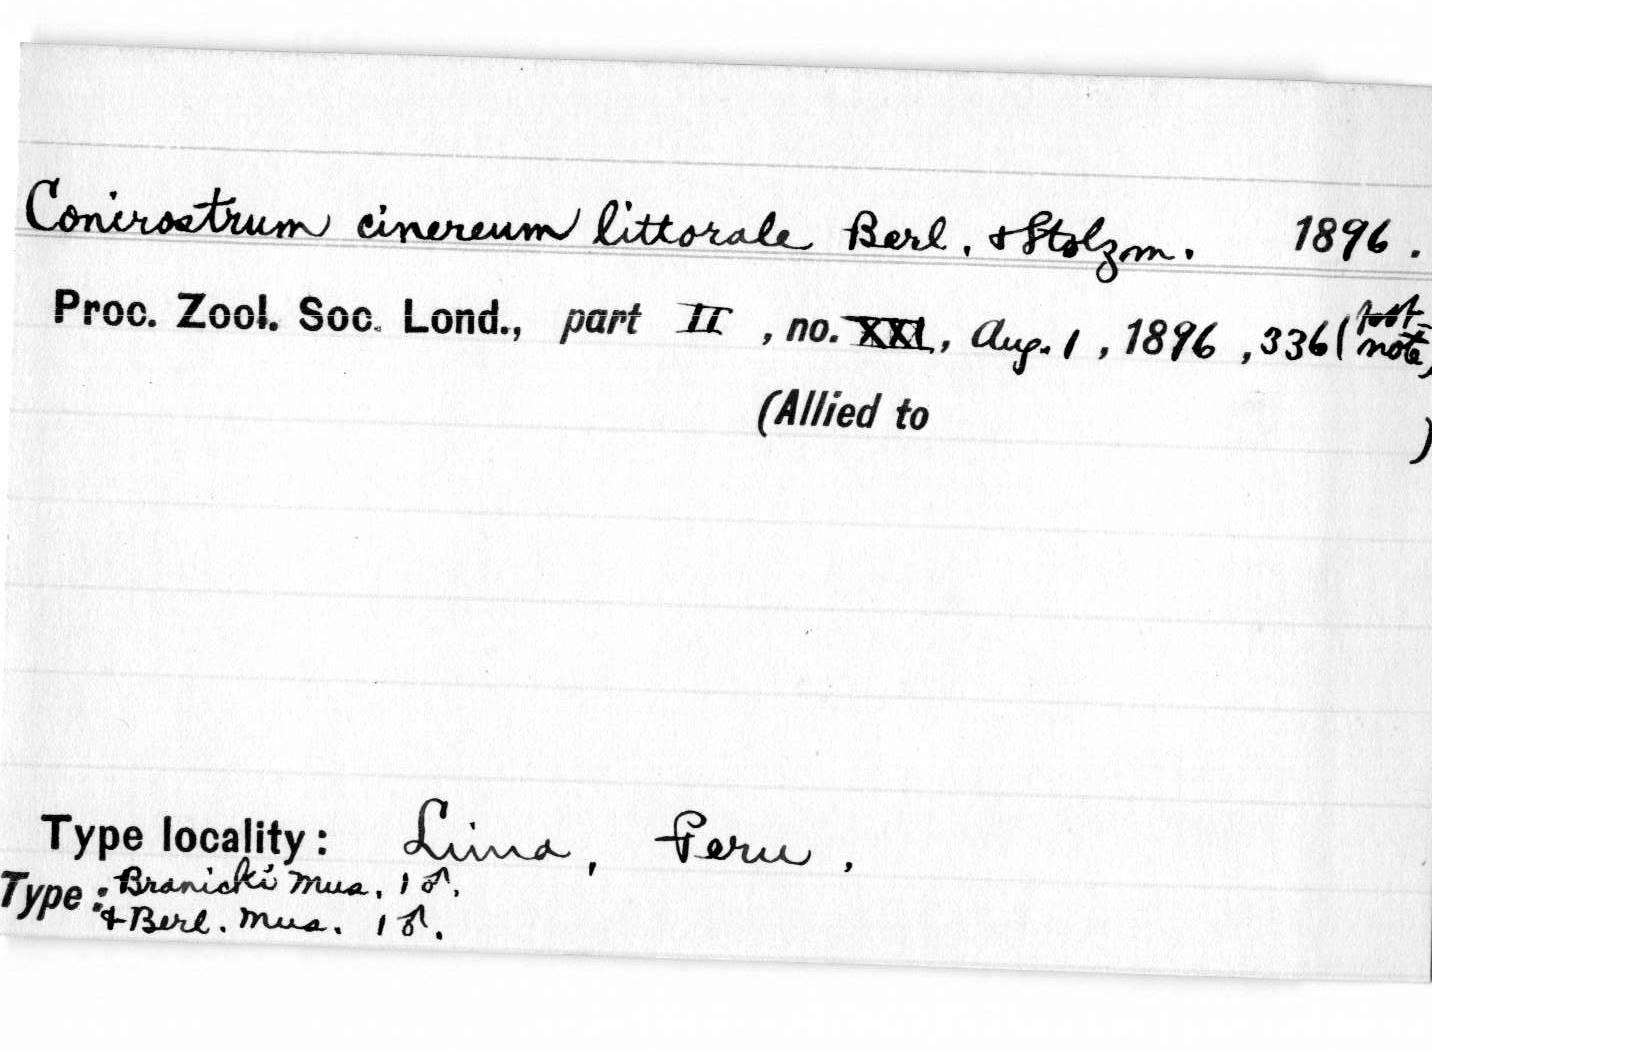 Conirostrum cinereum littorale Berl. & Stolzm. 1896.
Proc. Zool. Soc. Lond., part II, no. XXI, Aug. 1, 1896, 336 (foot-note)
(Allied to )
Type locality: Lima, Peru,
Type: Branicki Mus. 1 ♂.
& Berl. Mus. 1 ♂.